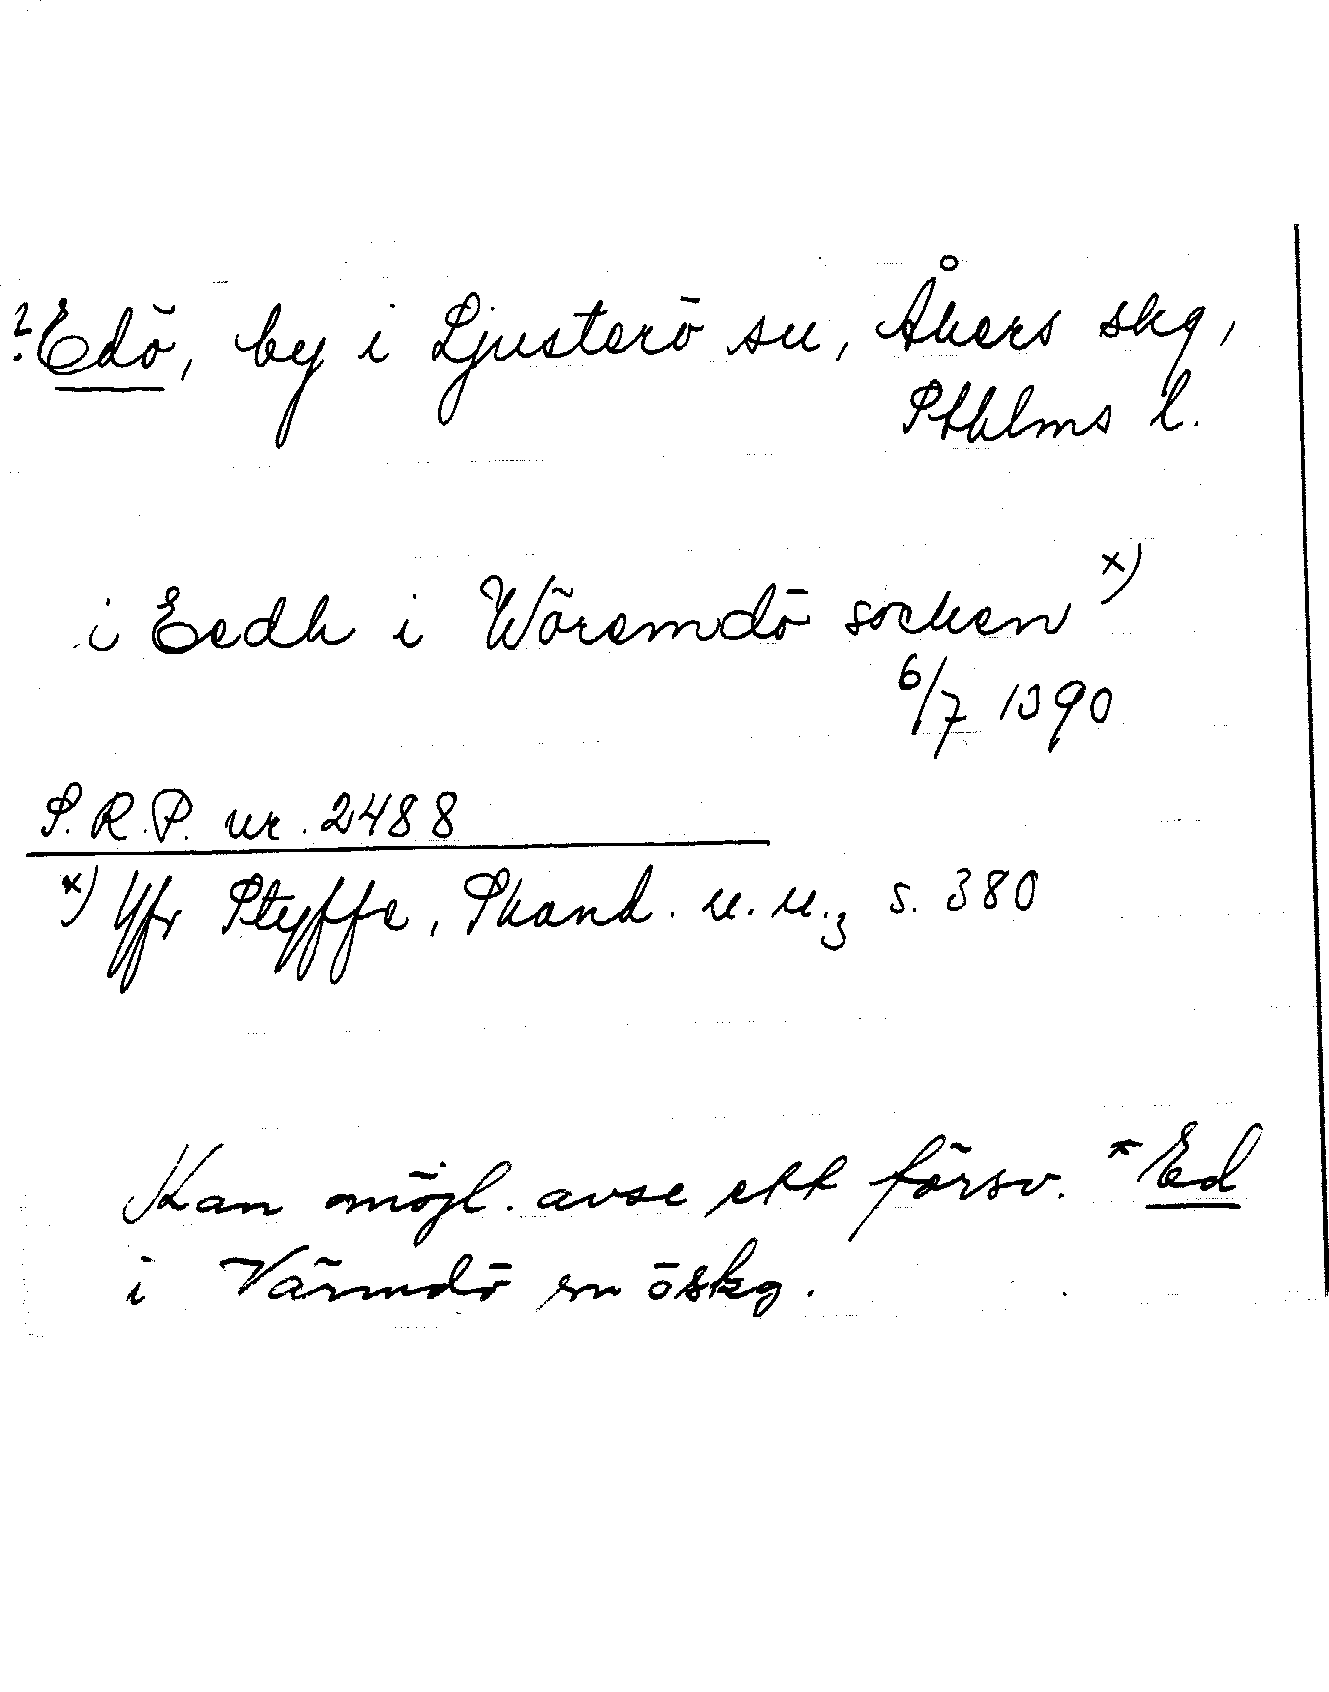 ? Edö, by i Ljusterö sn, Åkers skg,
Sthlms l.
i Eedh i Wöremdö socken x)
6/7 1390
S.R.P. nr. 2488
x) Jfr Styffe, Skand. u. u.3 s. 380
Kan möjl. avse ett försv. *Ed
i Värmdö sn ö skg.